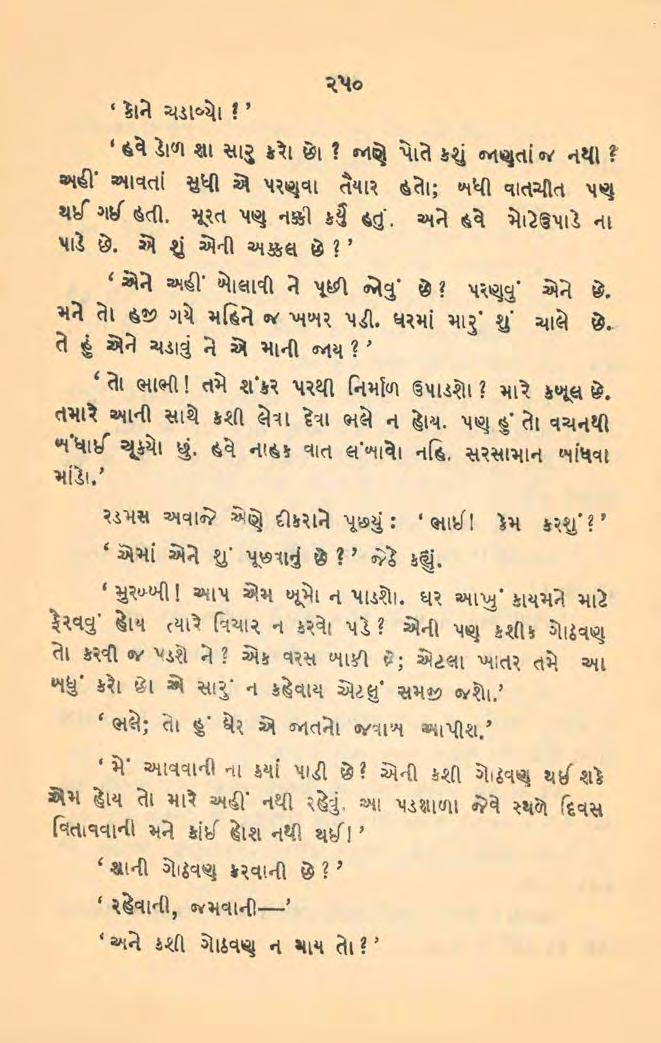 ૨૫૦
‘ કોને ચડાવ્યો ? ’
‘ હવે ડોળ શા સારુ કરો છો ? જાણે પોતે કશું જાણતાં જ નથી ?
અહીં આવતાં સુધી એ પરણવા તૈયાર હતો; બધી વાતચીત પણ
થઈ ગઈ હતી. મૂરત પણ નક્કી કર્યું હતું. અને હવે મોટેઉપાડે ના
પાડે છે. એ શું એની અક્કલ છે ? ’
‘ એને અહીં બોલાવી ને પૂછી જોવું છે ? પરણવું એને છે.
મને તો હજી ગયે મહિને જ ખબર પડી. ઘરમાં મારું શું ચાલે છે.
તે હું એને ચડાવું ને એ માની જાય ? ’
‘ તો ભાભી ! તમે શંકર પરથી નિર્માળ ઉપાડશો ? મારે કબૂલ છે.
તમારે આની સાથે કશી લેત્રા દેત્રા ભલે ન હોય. પણ હું તો વચનથી
બંધાઈ ચૂક્યો છું. હવે નાહક વાત લંબાવો નહિ. સરસામાન બાંધવા
માંડો.’
રડમસ અવાજે એણે દીકરાને પૂછ્યું : ‘ ભાઈ ! કેમ કરશું ? ’
‘ એમાં એને શું પૂછવાનું છે ? ’ જેઠે કહ્યું.
‘ મુરબ્બી ! આપ એમ બૂમો ન પાડશો. ઘર આખું કાયમને માટે
ફેરવવું હોય ત્યારે વિચાર ન કરવો પડે ? એની પણ કશીક ગોઠવણ
તો કરવી જ પડશે ને ? એક વરસ બાકી છે; એટલા ખાતર તમે આ
બધું કરો છો એ સારું ન કહેવાય એટલું સમજી જશો.’
‘ ભલે; તો હું ઘેર એ જાતનો જવાબ આપીશ.’
‘ મેં આવવાની ના ક્યાં પાડી છે ? એની કશી ગોઠવણ થઈ શકે
એમ હોય તો મારે અહીં નથી રહેવું. આ પડશાળા જેવે સ્થળે દિવસ
વિતાવવાની મને કાંઈ હોશ નથી થઈ ! ’
‘ શાની ગોઠવણ કરવાની છે ? ’
‘ રહેવાની, જમવાની—’
‘ અને કશી ગોઠવણ ન થાય તો ? ’